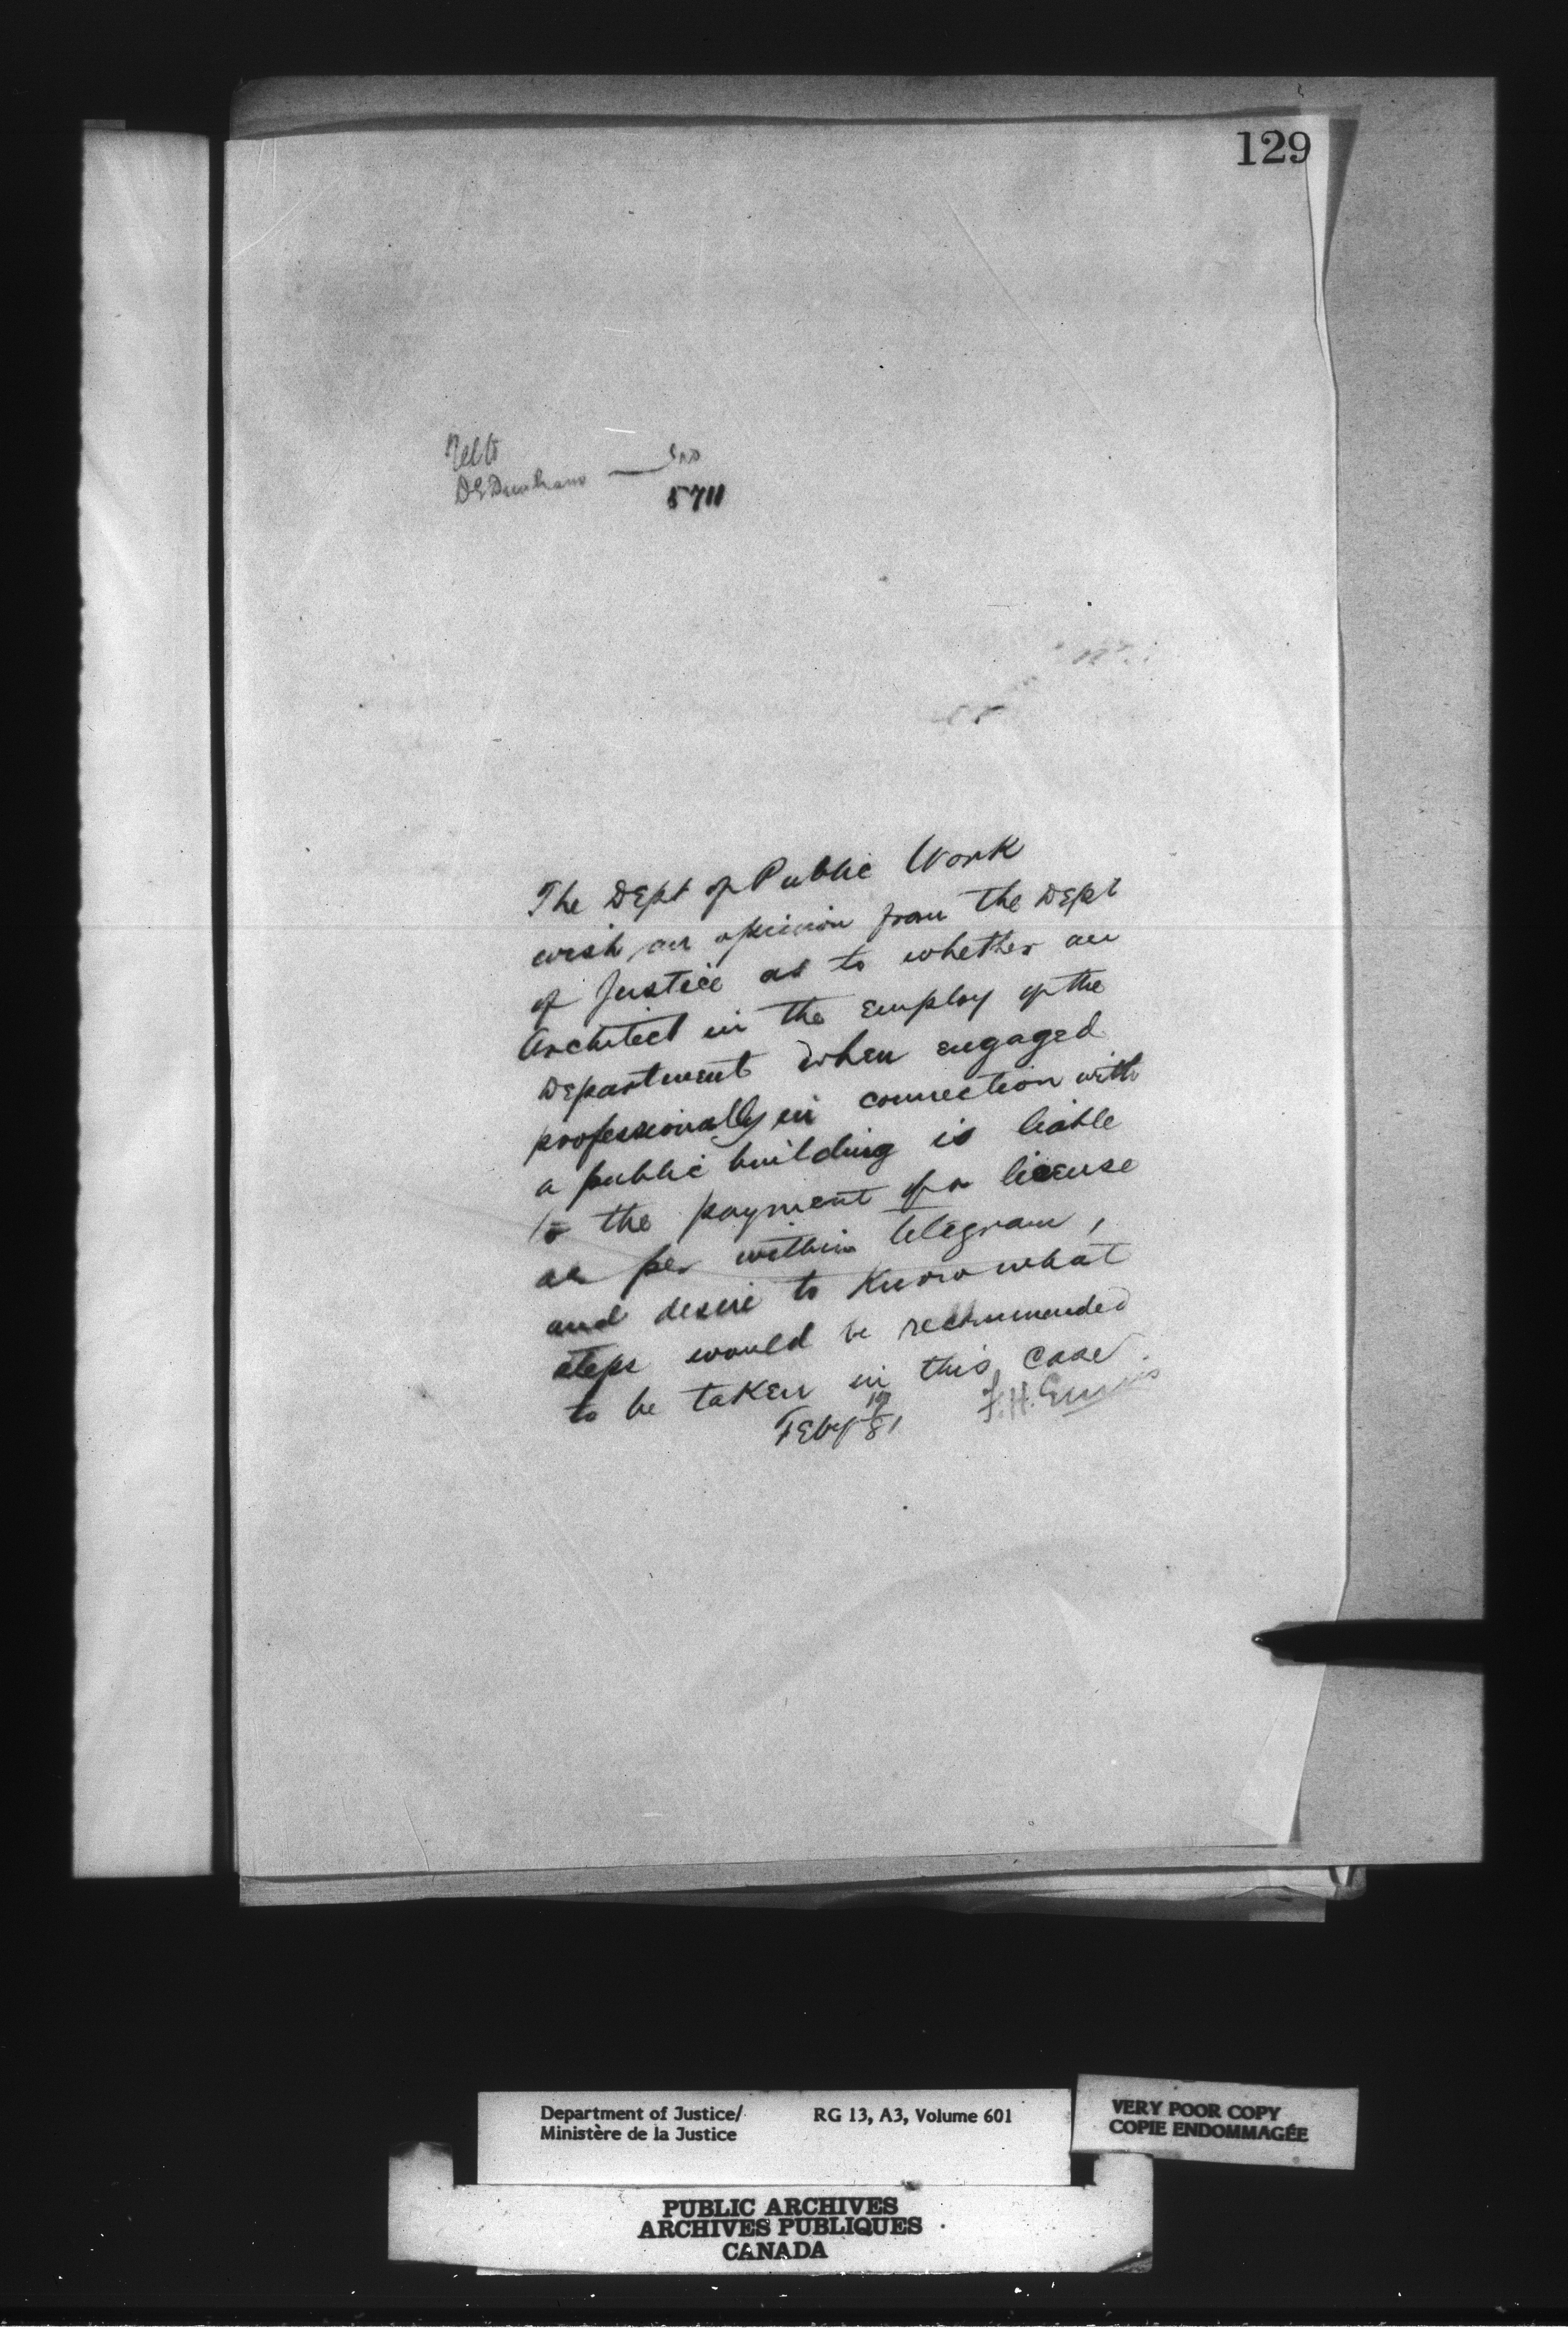 129
5711
The Dept of Public Work
wish an opinion from the Dept
of Justice as to whether an
Architect in the employ of the
Department when engaged
professionally in connection with
a public building is liable
to the payment of a license
as per within telegram,
and desire to Know what
steps would be recommended
to be taken in this case.
Feby 81 F.H. Ennis
Department of Justice/ RG 13, A3, Volume 601
Ministère de la Justice
VERY POOR COPY
COPIE ENDOMMAGÉE
PUBLIC ARCHIVES
ARCHIVES PUBLIQUES
CANADA